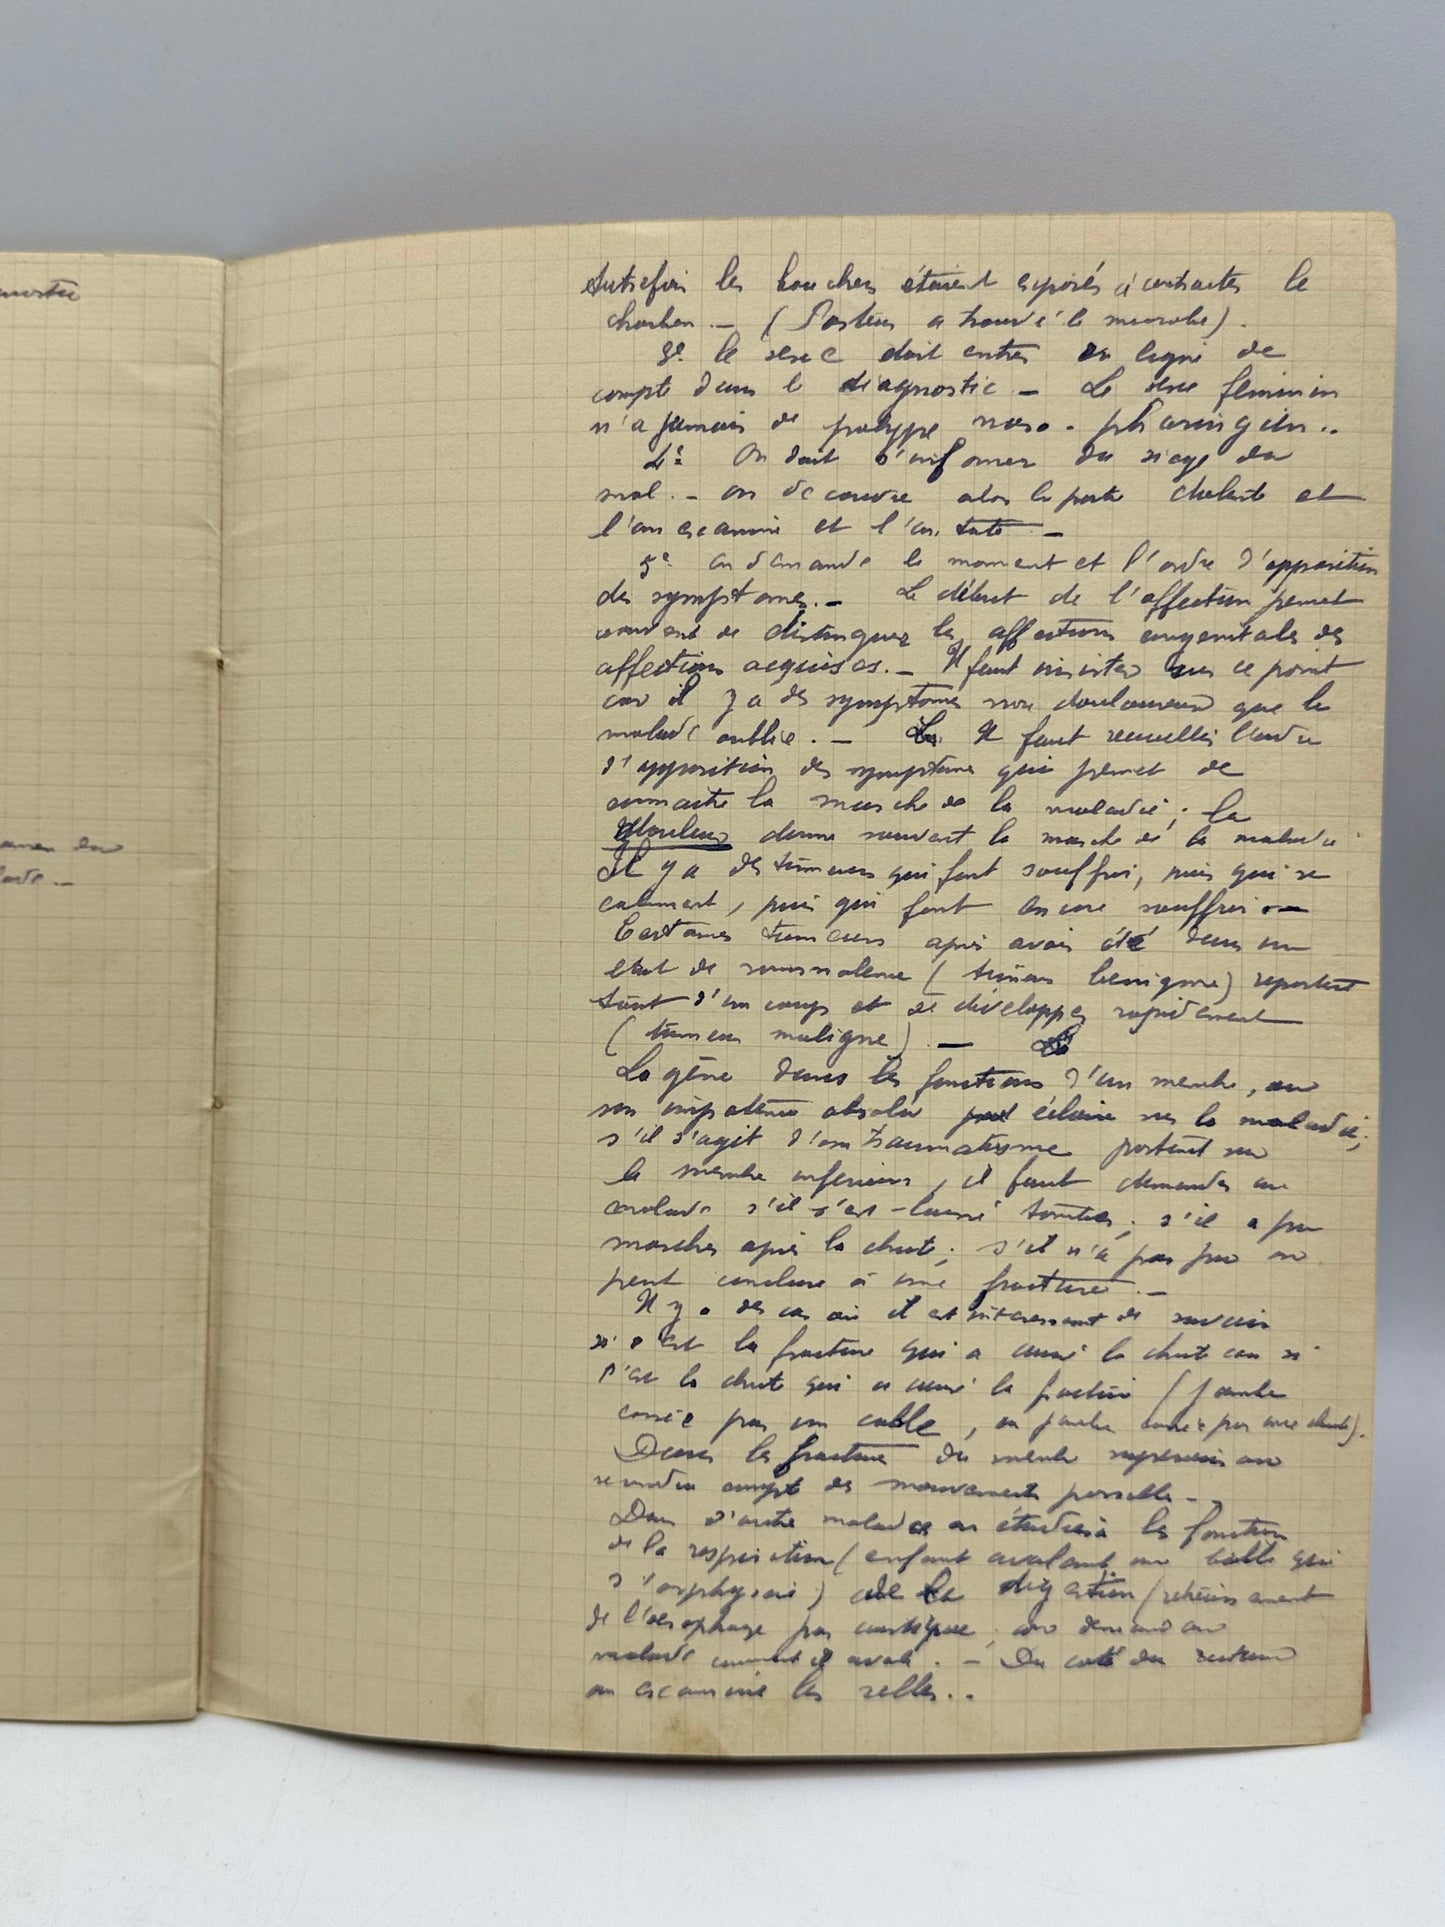 Autrefois les bouchers étaient exposés à contracter le
charbon. - (Pasteur a trouvé le microbe).
3e le sexe doit entrer en ligne de
compte dans le diagnostic - Le sexe féminin
n'a jamais de polype naso-pharingien..
4e On doit s'informer du siège du
mal. - on découvre alors la partie et
l'on examine et l'on tate -
5e on demande le moment et l'ordre d'apparition
des symptomes. - Le début de l'affection permet
souvent de distinguer les affections congenitales des
affections acquises. - Il faut insister sur ce point
car il y a des symptomes non douloureux que le
malade oublie. - Il faut recueillir l'ordre
d'apparition des symptomes qui permet de
connaitre la marche de la maladie; la
douleur donne souvent la marche de la maladie
Il y a des tumeurs qui font souffrir, puis qui se
calment, puis qui font encore souffrir -
Certaines tumeurs après avoir été dans un
etat de somnolence (tumeur benigne) repartent
tout d'un coup et se développer rapidement
(tumeur maligne). -
La gêne dans les fonctions d'un membre, ou
son impotence absolue éclaire sur la maladie;
s'il s'agit d'un traumatisme portant sur
le membre inferieur, il faut demander au
malade s'il s'est laissé tomber; s'il a pu
marcher après la chute; s'il n'a pas pu on
peut conclure à une fracture. -
Il y a des cas où il est interessant de savoir
si c'est la fracture qui a causé la chute ou si
c'est la chute qui a causé la fracture (jambe
cassée par un cable, ou jambe cassée par une chute).
Dans les fractures du membre superieur on
se rendra compte des mouvements possibles - .
Dans d'autre maladies on étudiera les fonctions
de la respiration (enfant avalant une bille qui
s'asphyxie) de la digestion (retrecissement
de l'oesophage par caustique, on demande au
malade comment il avale. - Du coté du rectum
on examine les selles..